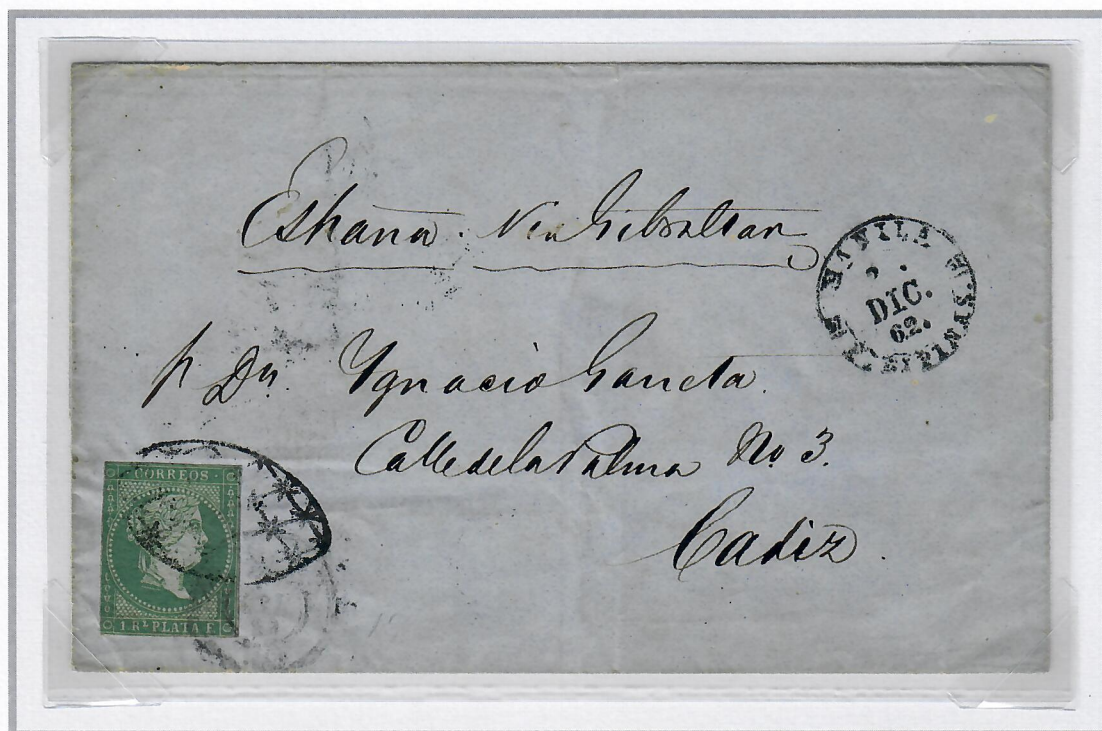 España. Via Gibraltar
MANILA
DIC.
62.
FILIPINAS.
p Dn. Ygnacio Garcia
Calle de la Palma No. 3.
Cadiz.
CORREOS
1 Rl. PLATA F.